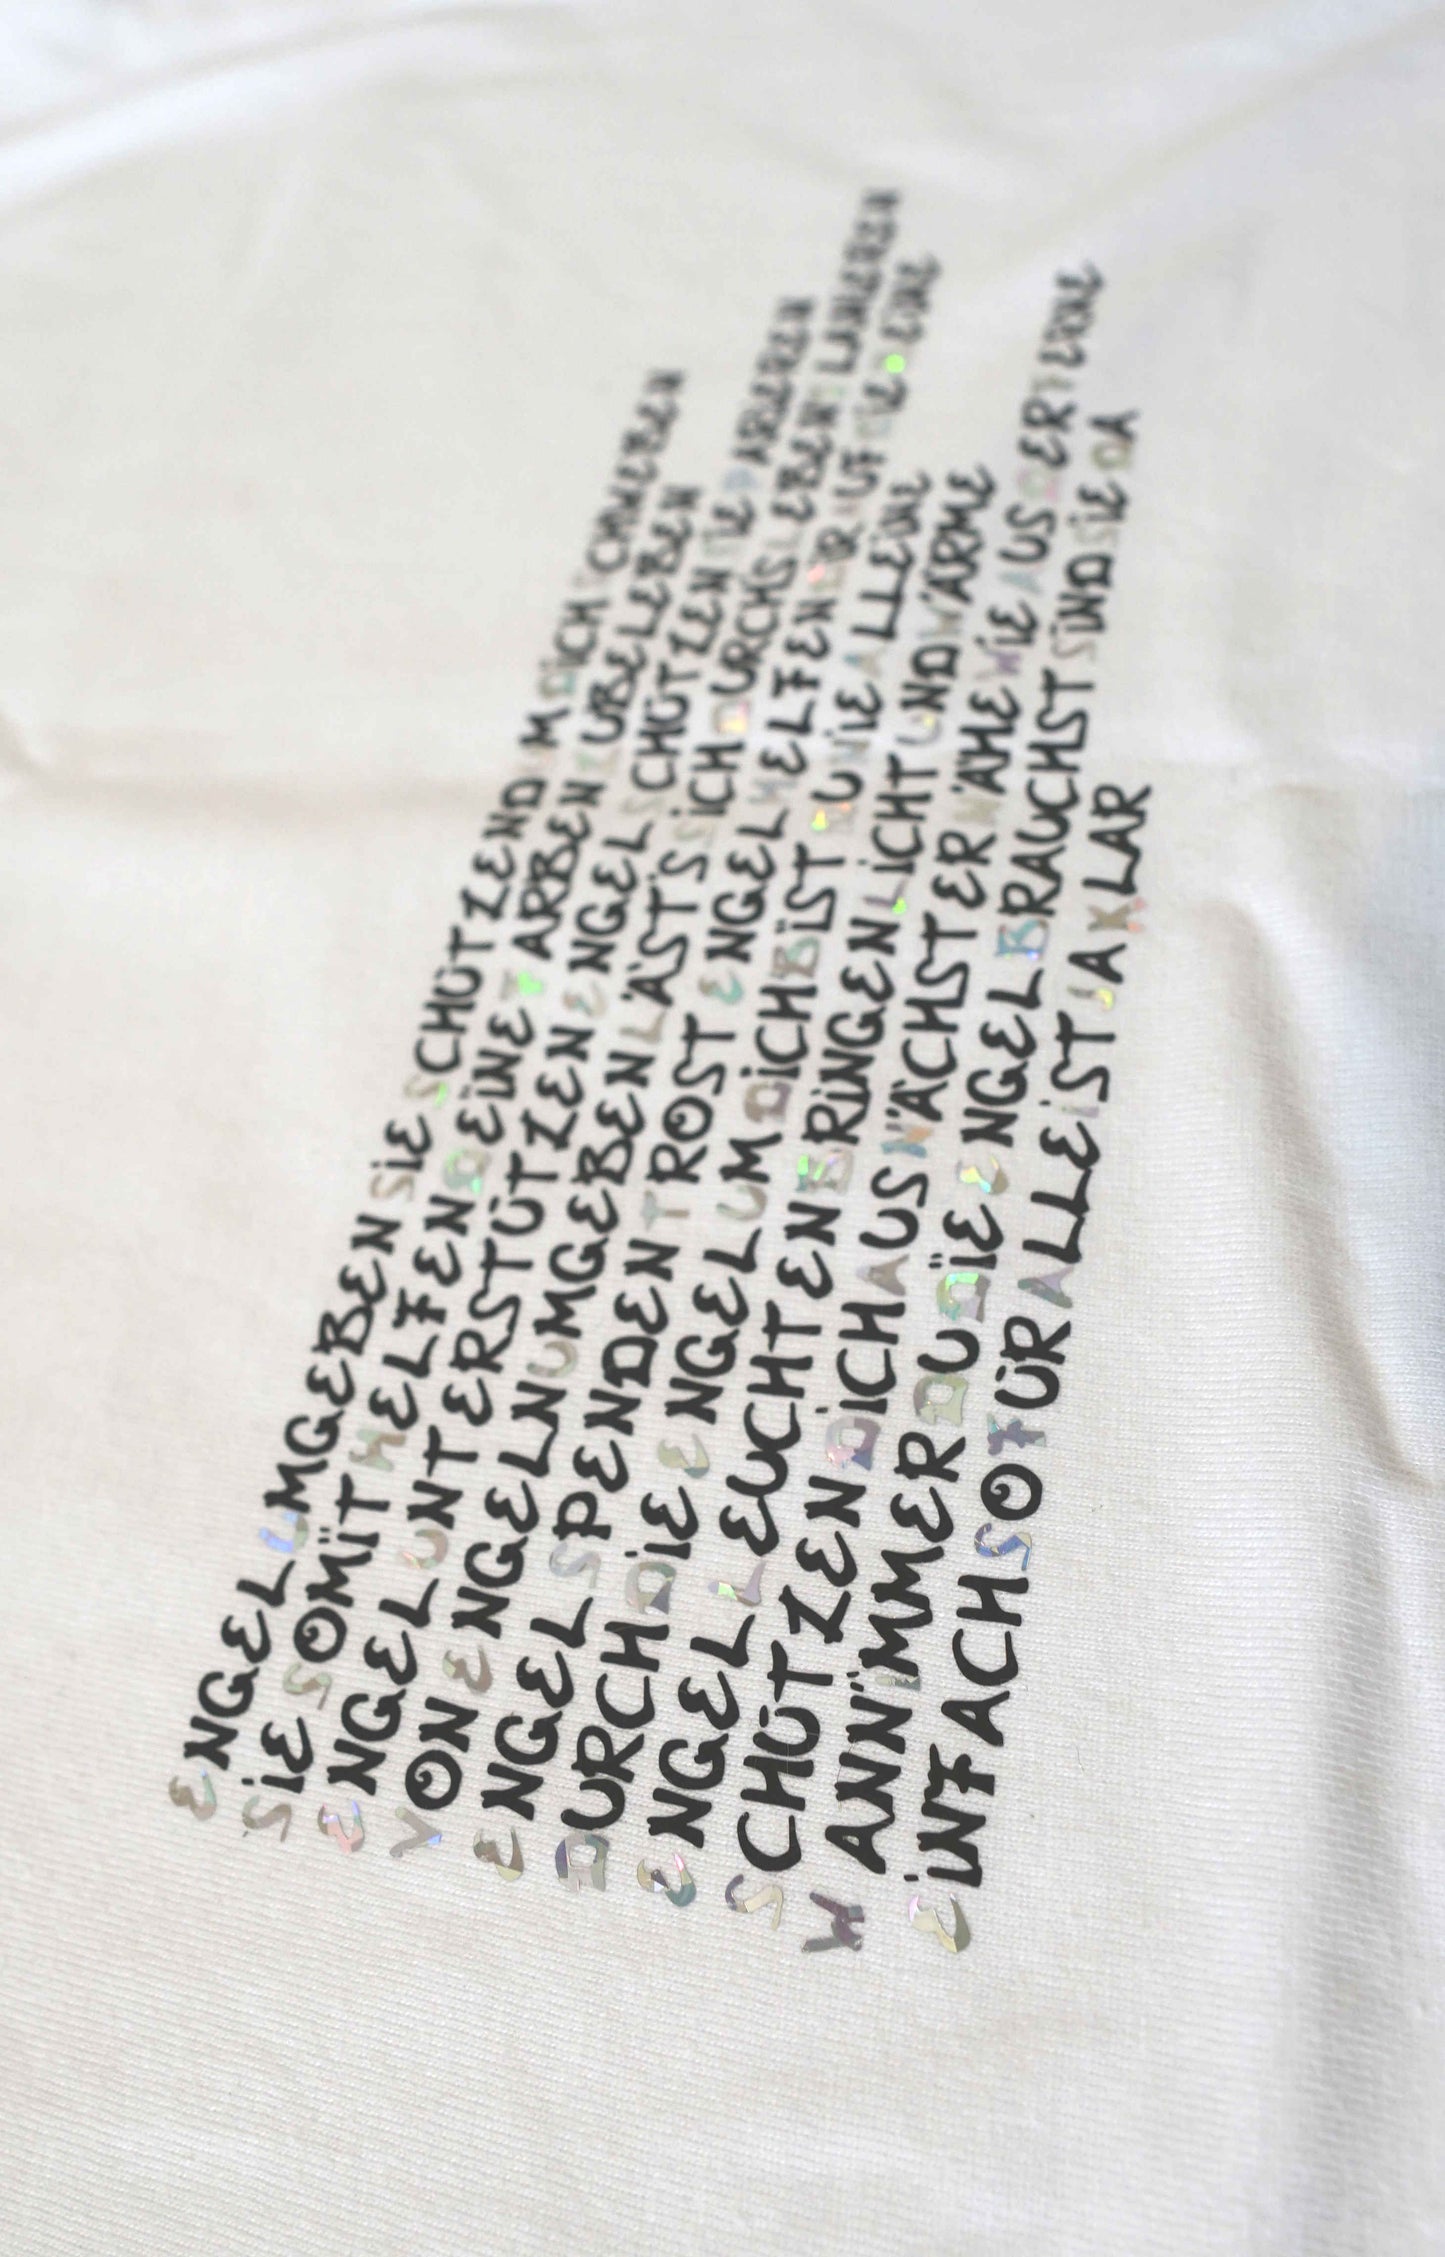 ENGEL UMGEBEN SIE SCHÜTZEND UM DICH SCHWEBEN
SIE SOMIT HELFEN DEINE FARBEN ZU BELEBEN
ENGEL UNTERSTÜTZEN ENGEL SCHÜTZEN SIE
VON ENGELN UMGEBEN LÄST'S SICH DURCHS LEBEN FLANIEREN
ENGEL SPENDEN TROST ENGEL HELFEN DIR AUF DIE BEINE
DURCH DIE ENGEL UM DICH BIST DU NIE ALLEINE
ENGEL LEUCHTEN BRINGEN LICHT UND WÄRME
SCHÜTZEN DICH AUS NÄCHSTER NÄHE WIE AUS DER FERNE
WANN IMMER DU DIE ENGEL BRAUCHST SIND SIE DA
EINFACH SO FÜR ALLE IST JA KLAR